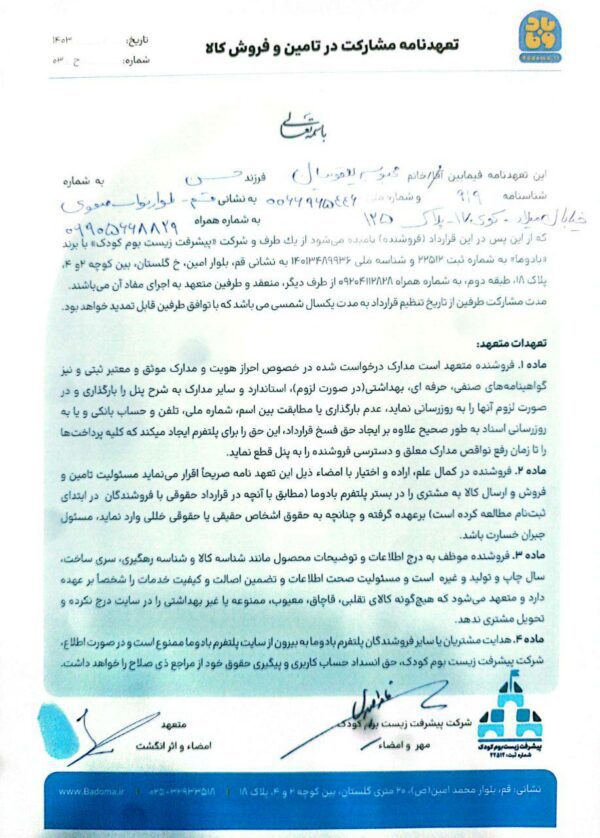 بادوما
Badoma.ir
تعهدنامه مشارکت در تامین و فروش کالا
تاریخ: ۱۴۰۳
شماره: ح ۰۳
باسمه تعالی
این تعهدنامه فیمابین آقا/خانم فرزند حسن به شماره
شناسنامه ۹۱۹ و شماره ملی به نشانی قم - بلوار نواب صفوی
خیابان میلاد - کوی ۱۷ - پلاک ۱۲۵ به شماره همراه ۰۹۹۰۵۶۶۸۸۲۹
که از این پس در این قرارداد (فروشنده) نامیده می‌شود از یک طرف و شرکت «پیشرفت زیست بوم کودک» با برند
«بادوما» به شماره ثبت ۲۲۵۱۲ و شناسه ملی ۱۴۰۱۳۴۸۹۹۳۶ به نشانی قم، بلوار امین، خ گلستان، بین کوچه ۲ و ۴،
پلاک ۱۸، طبقه دوم، به شماره همراه ۰۹۲۰۴۱۱۲۸۲۸ از طرف دیگر، منعقد و طرفین متعهد به اجرای مفاد آن می‌باشند.
مدت مشارکت طرفین از تاریخ تنظیم قرارداد به مدت یکسال شمسی می باشد که با توافق طرفین قابل تمدید خواهد بود.
تعهدات متعهد:
ماده ۱. فروشنده متعهد است مدارک درخواست شده در خصوص احراز هویت و مدارک موثق و معتبر ثبتی و نیز
گواهینامه‌های صنفی، حرفه ای، بهداشتی(در صورت لزوم)، استاندارد و سایر مدارک به شرح پنل را بارگذاری و در
صورت لزوم آنها را به روزرسانی نماید، عدم بارگذاری یا مطابقت بین اسم، شماره ملی، تلفن و حساب بانکی و یا به
روزرسانی اسناد به طور صحیح علاوه بر ایجاد حق فسخ قرارداد، این حق را برای پلتفرم ایجاد میکند که کلیه پرداخت‌ها
را تا زمان رفع نواقص مدارک معلق و دسترسی فروشنده را به پنل قطع نماید.
ماده ۲. فروشنده در کمال علم، اراده و اختیار با امضاء ذیل این تعهد نامه صریحاً اقرار می‌نماید مسئولیت تامین و
فروش و ارسال کالا به مشتری را در بستر پلتفرم بادوما (مطابق با آنچه در قرارداد حقوقی با فروشندگان در ابتدای
ثبت‌نام مطالعه کرده است) برعهده گرفته و چنانچه به حقوق اشخاص حقیقی یا حقوقی خللی وارد نماید، مسئول
جبران خسارت باشد.
ماده ۳. فروشنده موظف به درج اطلاعات و توضیحات محصول مانند شناسه کالا و شناسه رهگیری، سری ساخت،
سال چاپ و تولید و غیره است و مسئولیت صحت اطلاعات و تضمین اصالت و کیفیت خدمات را شخصاً بر عهده
دارد و متعهد می‌شود که هیچ‌گونه کالای تقلبی، قاچاق، معیوب، ممنوعه یا غیر بهداشتی را در سایت درج نکرده و
تحویل مشتری ندهد.
ماده ۴. هدایت مشتریان یا سایر فروشندگان پلتفرم بادوما به بیرون از سایت پلتفرم بادوما ممنوع است و در صورت اطلاع،
شرکت پیشرفت زیست بوم کودک، حق انسداد حساب کاربری و پیگیری حقوق خود از مراجع ذی صلاح را خواهد داشت.
شرکت پیشرفت زیست بوم کودک
مهر و امضاء
متعهد
امضاء و اثر انگشت
پیشرفت زیست‌بوم کودک
شماره ثبت: ۲۲۵۱۲
نشانی: قم، بلوار محمد امین(ص)، ۲۰ متری گلستان، بین کوچه ۲ و ۴، پلاک ۱۸ | ۰۲۵-۳۲۹۳۳۵۱۸ | www.Badoma.ir